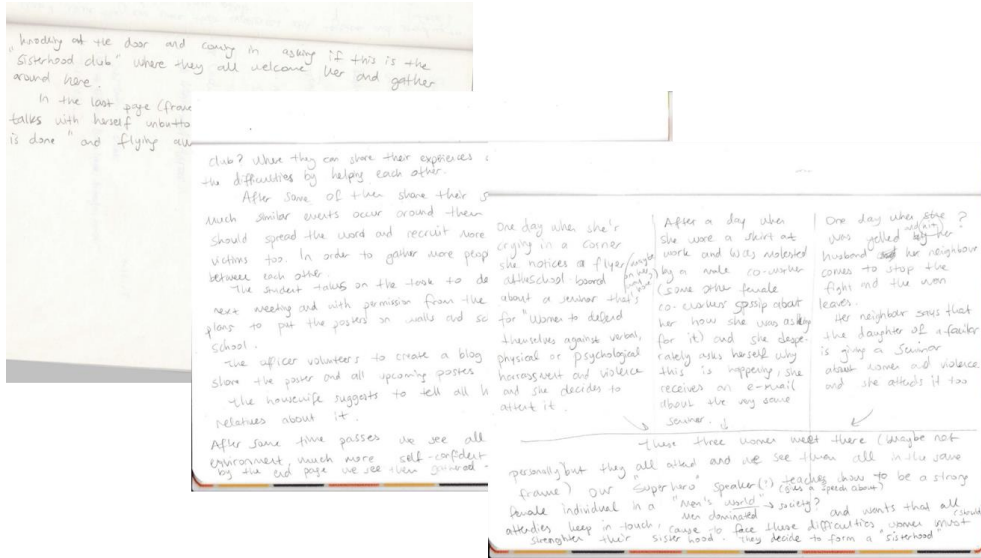 knocking at the door and coming in asking if this is the
"sisterhood club" where they all welcome her and gather
around here.
In the last page (frame
talks with herself unbutto
is done" and flying aw
club? Where they can share their experiences
the difficulties by helping each other.
After some of them share their s
much similar events occur around them
should spread the word and recruit more
victims too. In order to gather more peop
between each other.
The student takes on the task to de
next meeting and with permission from the
plans to put the posters on walls and sc
school.
The officer volunteers to create a blog
share the poster and all upcoming posters
The housewife suggests to tell all h
relatives about it.
After some time passes we see all
environment, much more self-confident
by the end page we see them gathered
One day when she'r
crying in a corner
she notices a flyer
at the school board
about a seminar that's
for "Women to defend
themselves against verbal,
physical or psychological
harassment and violence
and she decides to
attend it.
After a day when
she wore a skirt at
work and was molested
by a male co-worker
(some other female
co-workers gossip about
her how she was asking
for it) and she despe-
rately asks herself why
this is happening, she
receives an e-mail
about the very same
seminar.
One day when she ?
was yelled by her
husband her neighbour
comes to stop the
fight and the man
leaves.
Her neighbour says that
the daughter of a
is giving a seminar
about women and violence
and she attends it too
These three women meet there (Maybe not
personally but they all attend and we see them all in the same
frame) Our "Superhero" speaker(?) teaches how to be a strong
(gives a speech about)
female individual in a "men's world" → society?
men dominated
and wants that all
attendies keep in touch, cause to face these difficulties women must
strenghten their sisterhood. They decide to form a "sisterhood"